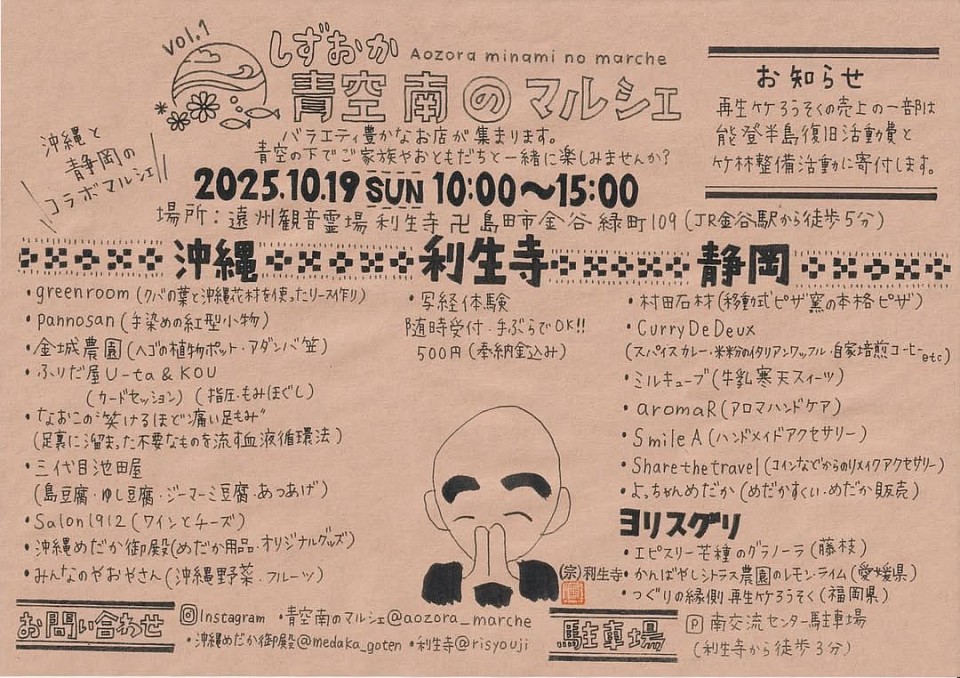 vol.1
しずおか
Aozora minami no marche
青空南のマルシェ
沖縄と
静岡の
コラボマルシェ
バラエティ豊かなお店が集まります。
青空の下でご家族やおともだちと一緒に楽しみませんか?
2025.10.19 SUN 10:00〜15:00
場所：遠州観音霊場 利生寺 卍 島田市金谷緑町109 (JR金谷駅から徒歩5分)
お知らせ
再生竹ろうそくの売上の一部は
能登半島復旧活動費と
竹林整備活動に寄付します。
沖縄
・greenroom (クバの葉と沖縄花材を使ったリース作り)
・pannosan (手染めの紅型小物)
・金城農園 (ヘゴの植物ポット・アダンバ笠)
・ふりだ屋U-ta & KOU
(カードセッション) (指圧・もみほぐし)
・なおこの"笑けるほど痛い足もみ"
(足裏に溜まった不要なものを流す血液循環法)
・三代目池田屋
(島豆腐・ゆし豆腐・ジーマーミ豆腐・あつあげ)
・Salon1912 (ワインとチーズ)
・沖縄めだか御殿(めだか用品・オリジナルグッズ)
・みんなのやおやさん (沖縄野菜・フルーツ)
利生寺
・写経体験
随時受付・手ぶらでOK!!
500円 (奉納金込み)
(宗)利生寺
静岡
・村田石材 (移動式ピザ窯の本格ピザ)
・CurryDeDeux
(スパイスカレー・米粉のイタリアンワッフル・自家培煎コーヒーetc)
・ミルキューブ (牛乳寒天スイーツ)
・aromaR (アロマハンドケア)
・SmileA (ハンドメイドアクセサリー)
・Sharethetravel (コインなどからのリメイクアクセサリー)
・よっちゃんめだか (めだかすくい・めだか販売)
ヨリスグリ
・エピスリー芒種のグラノーラ (藤枝)
・かんばやしシトラス農園のレモン・ライム (愛媛県)
・つぐりの縁側 再生竹ろうそく (福岡県)
お問い合わせ
Instagram ・青空南のマルシェ@aozora_marche
・沖縄めだか御殿@medaka_goten ・利生寺@risyouji
駐車場
P 南交流センター駐車場
(利生寺から徒歩3分)